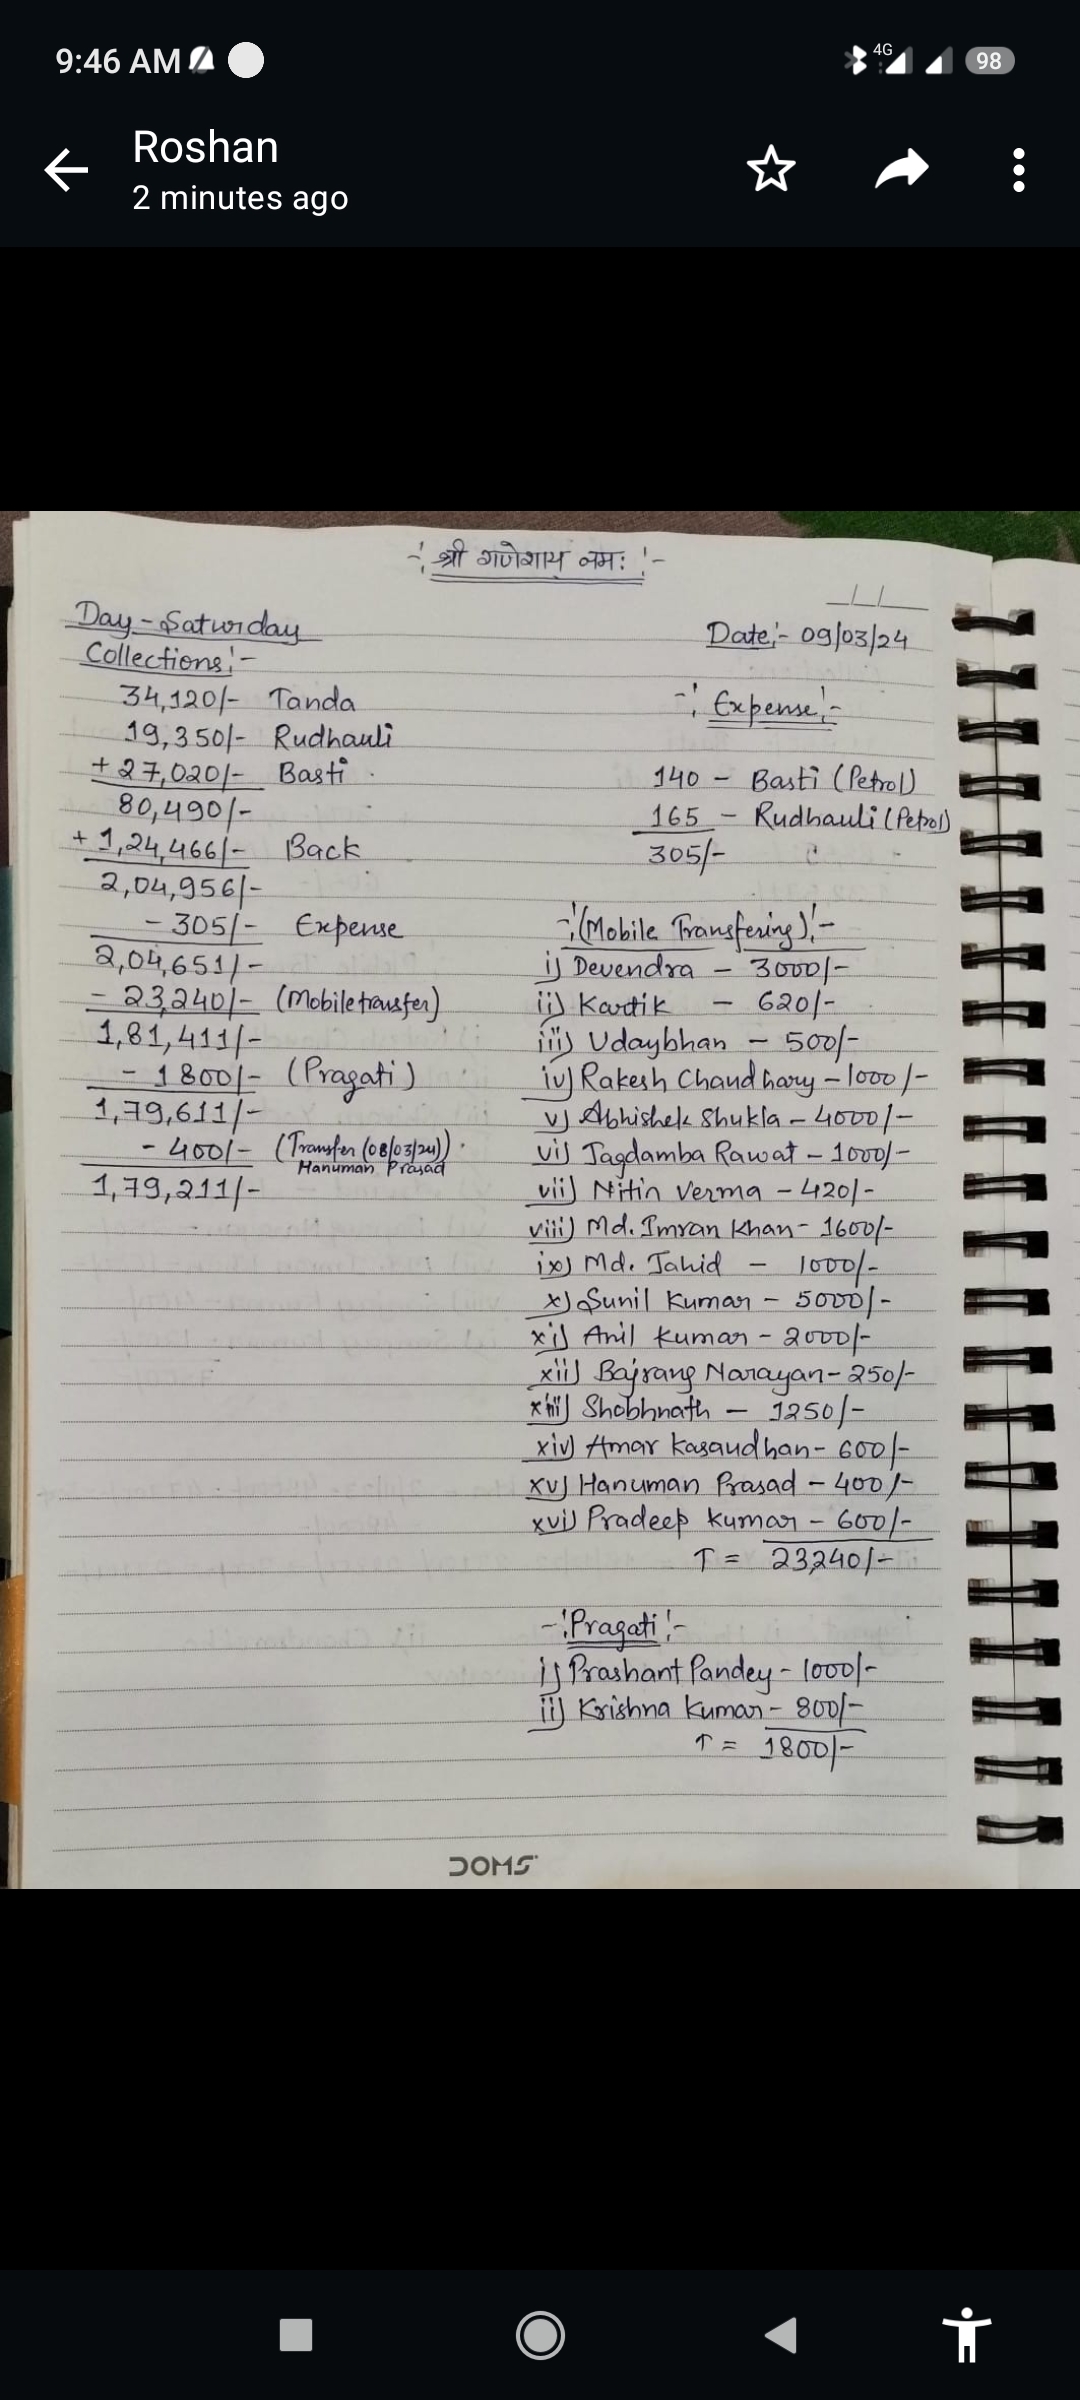 9:46 AM
4G
98
Roshan
2 minutes ago
-: श्री गणेशाय नमः :-
Day - Saturday
Date:- 09/03/24
Collections:-
34,120/- Tanda
19,350/- Rudhauli
+ 27,020/- Basti
80,490/-
+ 1,24,466/- Back
2,04,956/-
- 305/- Expense
2,04,651/-
- 23,240/- (Mobile transfer)
1,81,411/-
- 1800/- (Pragati)
1,79,611/-
- 400/- (Transfer (08/03/24))
Hanuman Prasad
1,79,211/-
-: Expense:-
140 - Basti (Petrol)
165 - Rudhauli (Petrol)
305/-
-:(Mobile Transfering):-
i) Devendra - 3000/-
ii) Kartik - 620/-
iii) Udaybhan - 500/-
iv) Rakesh Chaudhary - 1000/-
v) Abhishek Shukla - 4000/-
vi) Jagdamba Rawat - 1000/-
vii) Nitin Verma - 420/-
viii) Md. Imran Khan - 1600/-
ix) Md. Jahid - 1000/-
x) Sunil Kumar - 5000/-
xi) Anil Kumar - 2000/-
xii) Bajrang Narayan - 250/-
xiii) Shobhnath - 1250/-
xiv) Amar Kasaudhan - 600/-
xv) Hanuman Prasad - 400/-
xvi) Pradeep Kumar - 600/-
T = 23,240/-
-: Pragati :-
i) Prashant Pandey - 1000/-
ii) Krishna Kumar - 800/-
T = 1800/-
DOMS